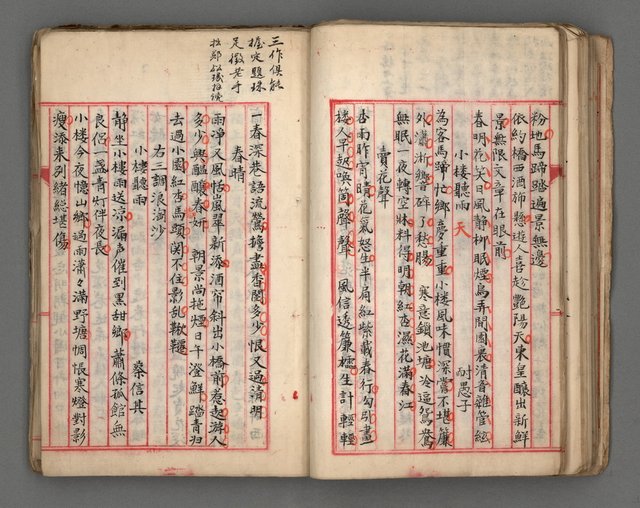 粉地馬蹄踏遍景無邊
依約橋西酒旆懸遊人喜趁艷陽天東皇釀出新鮮
景無限文章在眼前
春明花笑日風靜柳眠煙鳥弄閒園裏清音雜管絃
小樓聽雨 天 耐愚子
為客馬蹄忙鄉夢重重小樓風味慣深嘗不堪簾
外瀟淅響碎了愁腸 寒意鎖池塘冷逼鴛鴦
無眠一夜轉空牀料得明朝紅杏濕花滿春江
賣花聲
杏雨昨宵晴花氣怒生半肩紅紫載春行勾引畫
樓人乍起喚箇聲聲 風信透簾櫳生計輕輕
一春深巷語流鶯擔盡香閨多少恨又過清明
春晴
雨凈又風恬山翠新添酒帘斜出小橋前惹起游人
多少興醞釀春妍 朝景尚拖煙日午澄鮮踏青歸
去過小園紅杏馬頭関不住影乱鞦韆
右三調浪淘沙
小樓聽雨 桑信其
靜坐小樓雨送涼漏声催到黑甜鄉蕭條孤館無
良侶一盞青灯伴夜長
小樓今夜憶山鄉過雨瀟々滿野塘惆悵寒燈對影
瘦添來列緒總堪傷
三作俱能
握定題珠
足徵老手